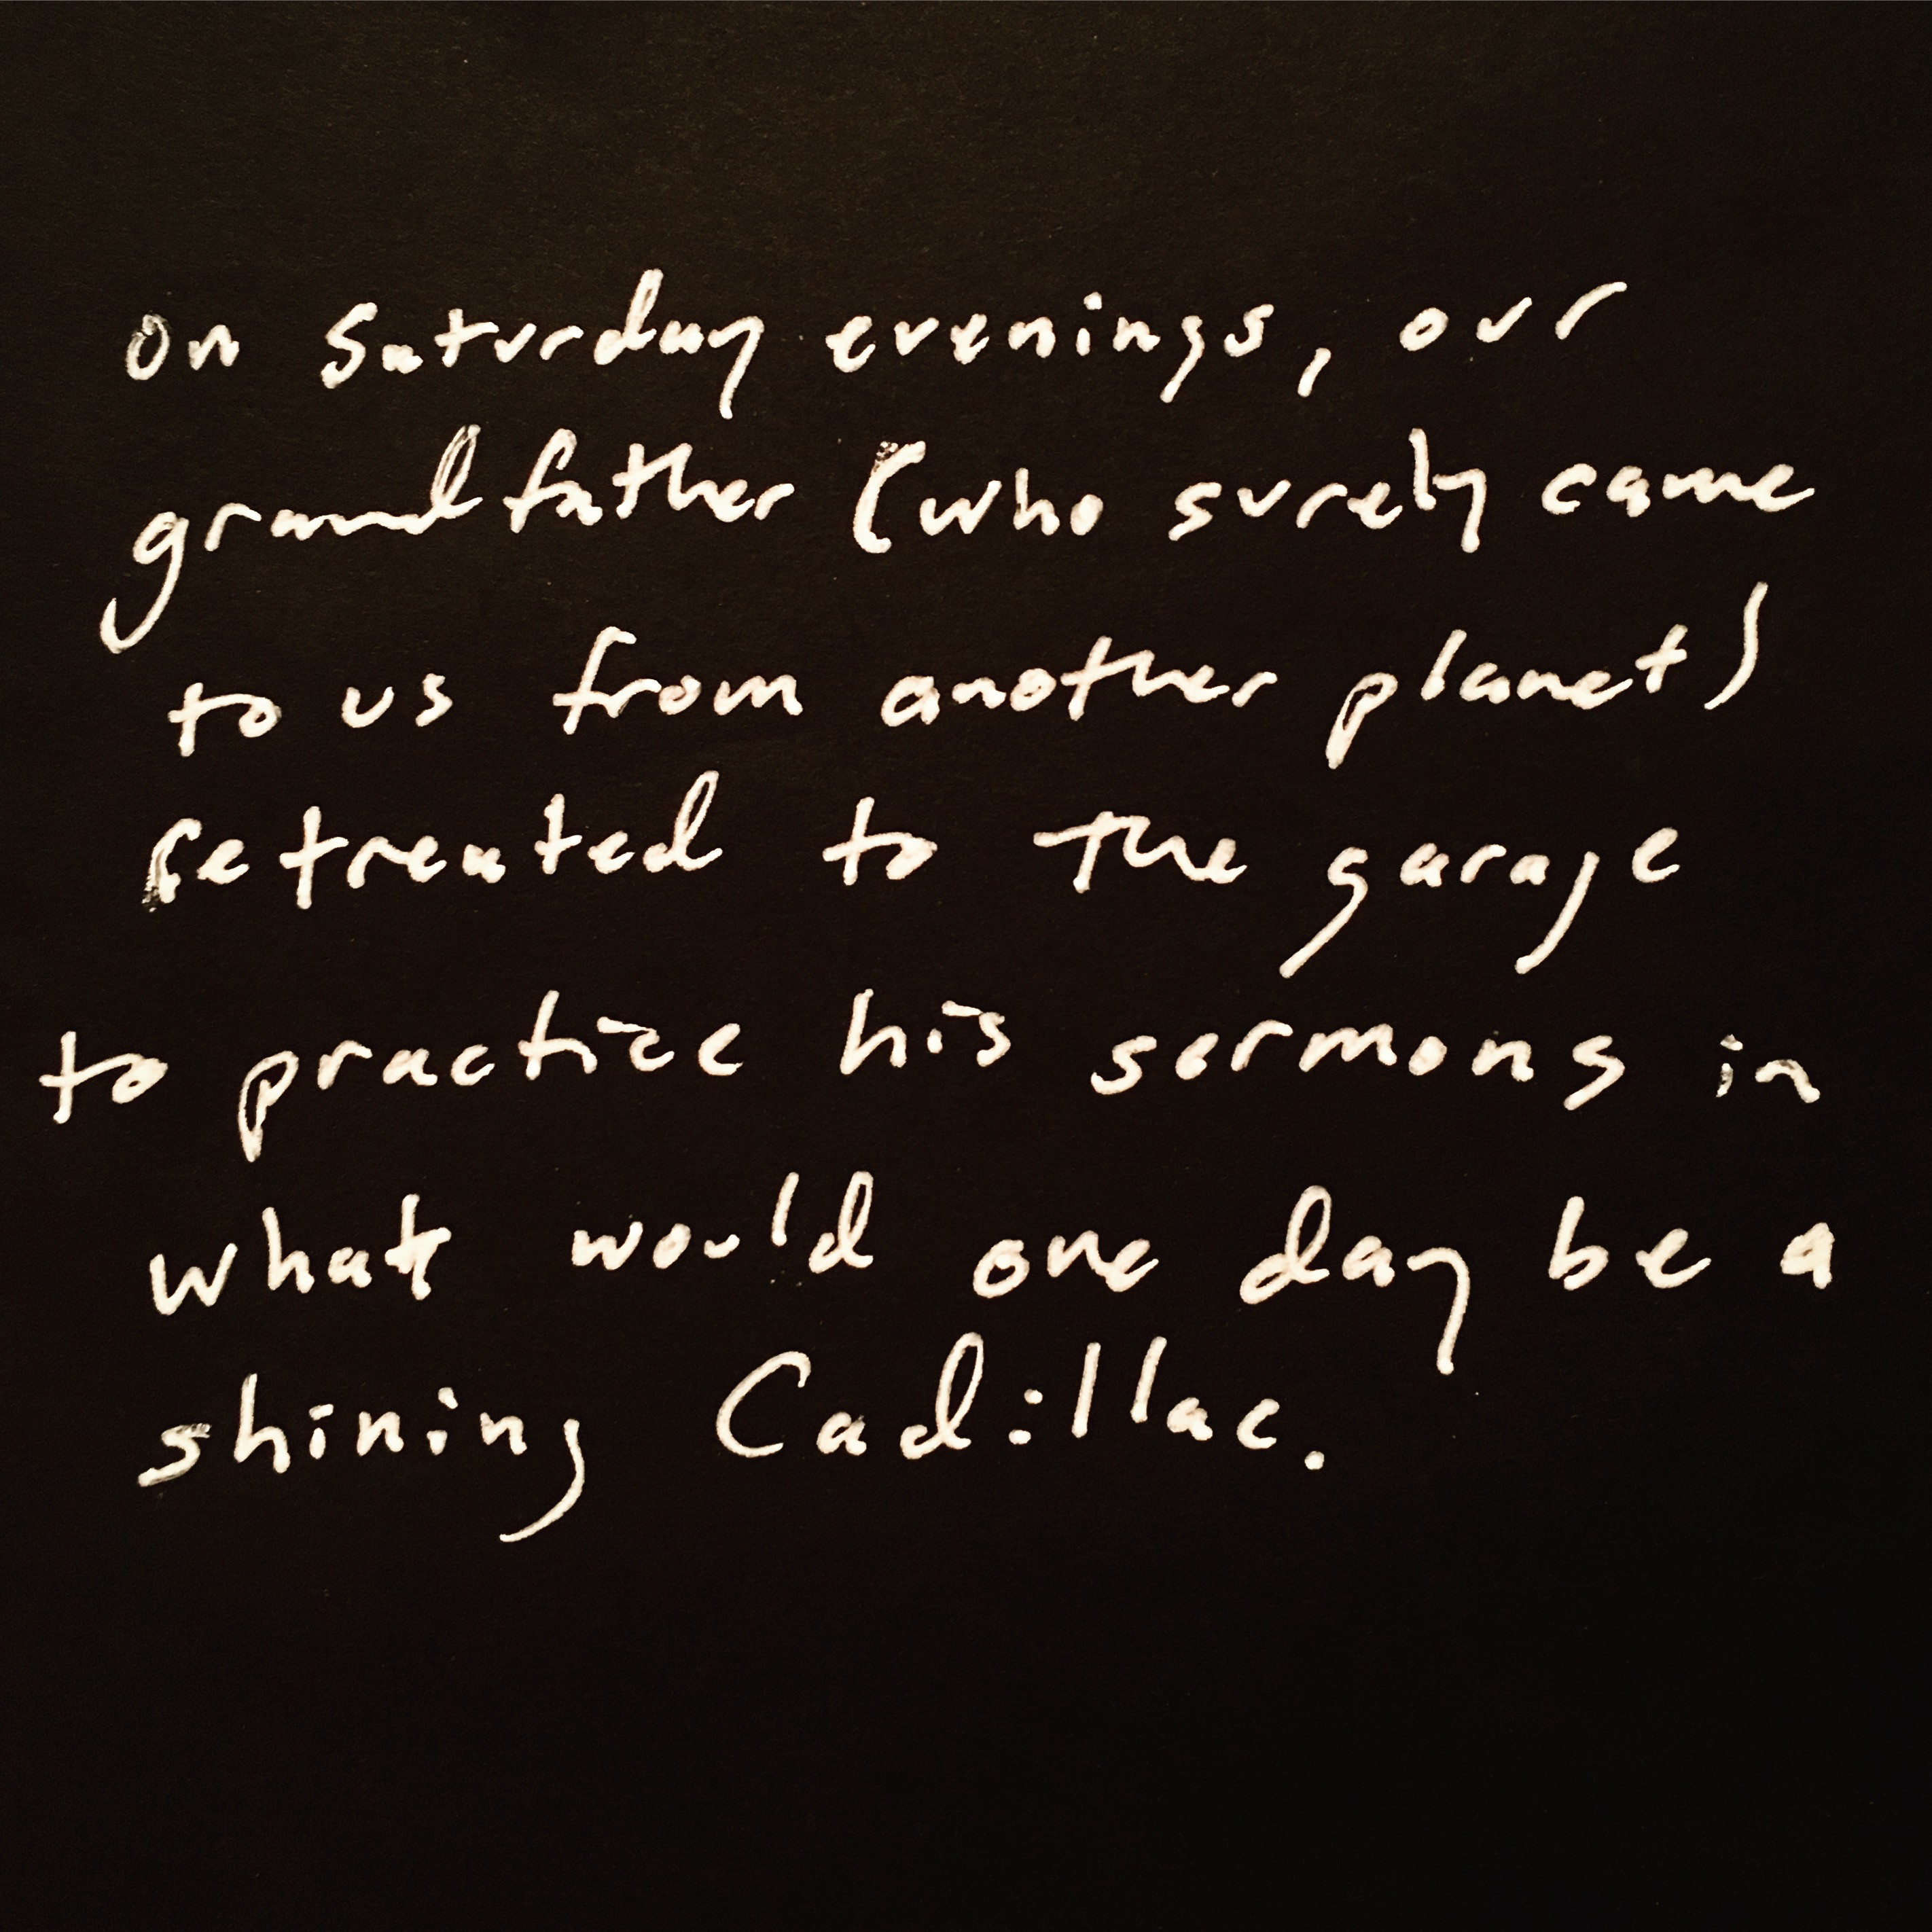 On Saturday evenings, our
grandfather (who surely came
to us from another planet)
retreated to the garage
to practice his sermons in
what would one day be a
shining Cadillac.